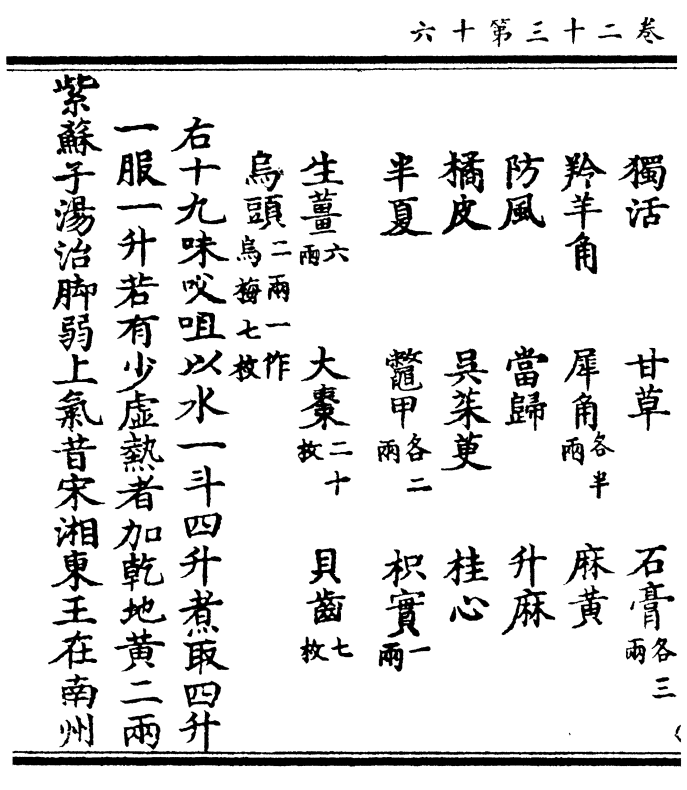 卷二十三第十六
獨活 甘草 石膏各三兩
羚羊角 犀角各半兩 麻黃
防風 當歸 升麻
橘皮 吳茱萸 桂心
半夏 鼈甲各二兩 枳實一兩
生薑六兩 大棗二十枚 貝齒七枚
烏頭二兩一作烏梅七枚
右十九味㕮咀以水一斗四升煮取四升
一服一升若有少虛熱者加乾地黃二兩
紫蘇子湯治脚弱上氣昔宋湘東王在南州